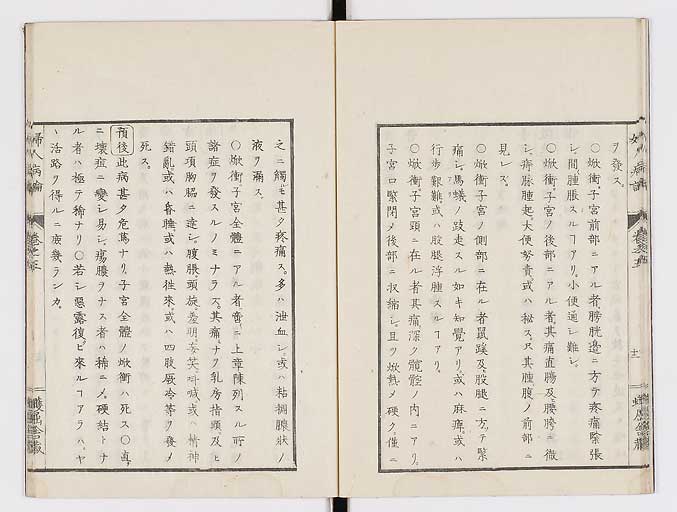 ヲ發ス。
○焮衝子宮前部ニアル者膀胱邉ニ方テ疼痛緊張
シ間腫脹スルヿアリ。小便通シ難シ。
○焮衝子宮ノ後部ニアル者其痛直腸及腰胯ニ徹
シ痔脉腫起大便努責或ハ秘ス。只其腫腹ノ前部ニ
見レズ。
○焮衝子宮ノ側部ニ在ル者鼠蹊及股腿ニ方テ緊
痛シ馬蟻ノ跂走スル如キ知覺アリ。或ハ麻痺。或ハ
行歩艱難或ハ股腿浮腫スルヿアリ。
○焮衝子宮頭ニ在ル者其痛深ク髖髖ノ内ニアリ。
子宮口緊閉メ後部ニ收縮シ且ツ焮熱メ硬ク。僅ニ
之ニ觸モ甚タ疼痛ス。多ハ泄血シ。或ハ粘稠膿狀ノ
液ヲ漏ス。
○焮衝子宮全體ニアル者啻ニ上章陳列スル所ノ
諸症ヲ發スルノミナラズ。其痛ナヲ乳房掯頭及ヒ
頭項胸腦ニ達シ腹脹頭旋。羞明。妄笑。叫喊。或ハ精神
錯亂。或ハ昏睡或ハ熱徃來。或ハ四肢厥冷等ヲ發メ
死ス。
預後此病甚タ危篤ナリ。子宮全體ノ焮衝ハ死ス○直
ニ壞疽ニ變シ易シ。瘍膿ヲナス者ハ稀ニメ。硬結トナ
ル者ハ極テ稀ナリ○若シ惡露復ヒ來ルヿアラハ。ヤ
ヽ活路ヲ得ルニ庶幾ランカ。
婦人病論
卷之五
十二